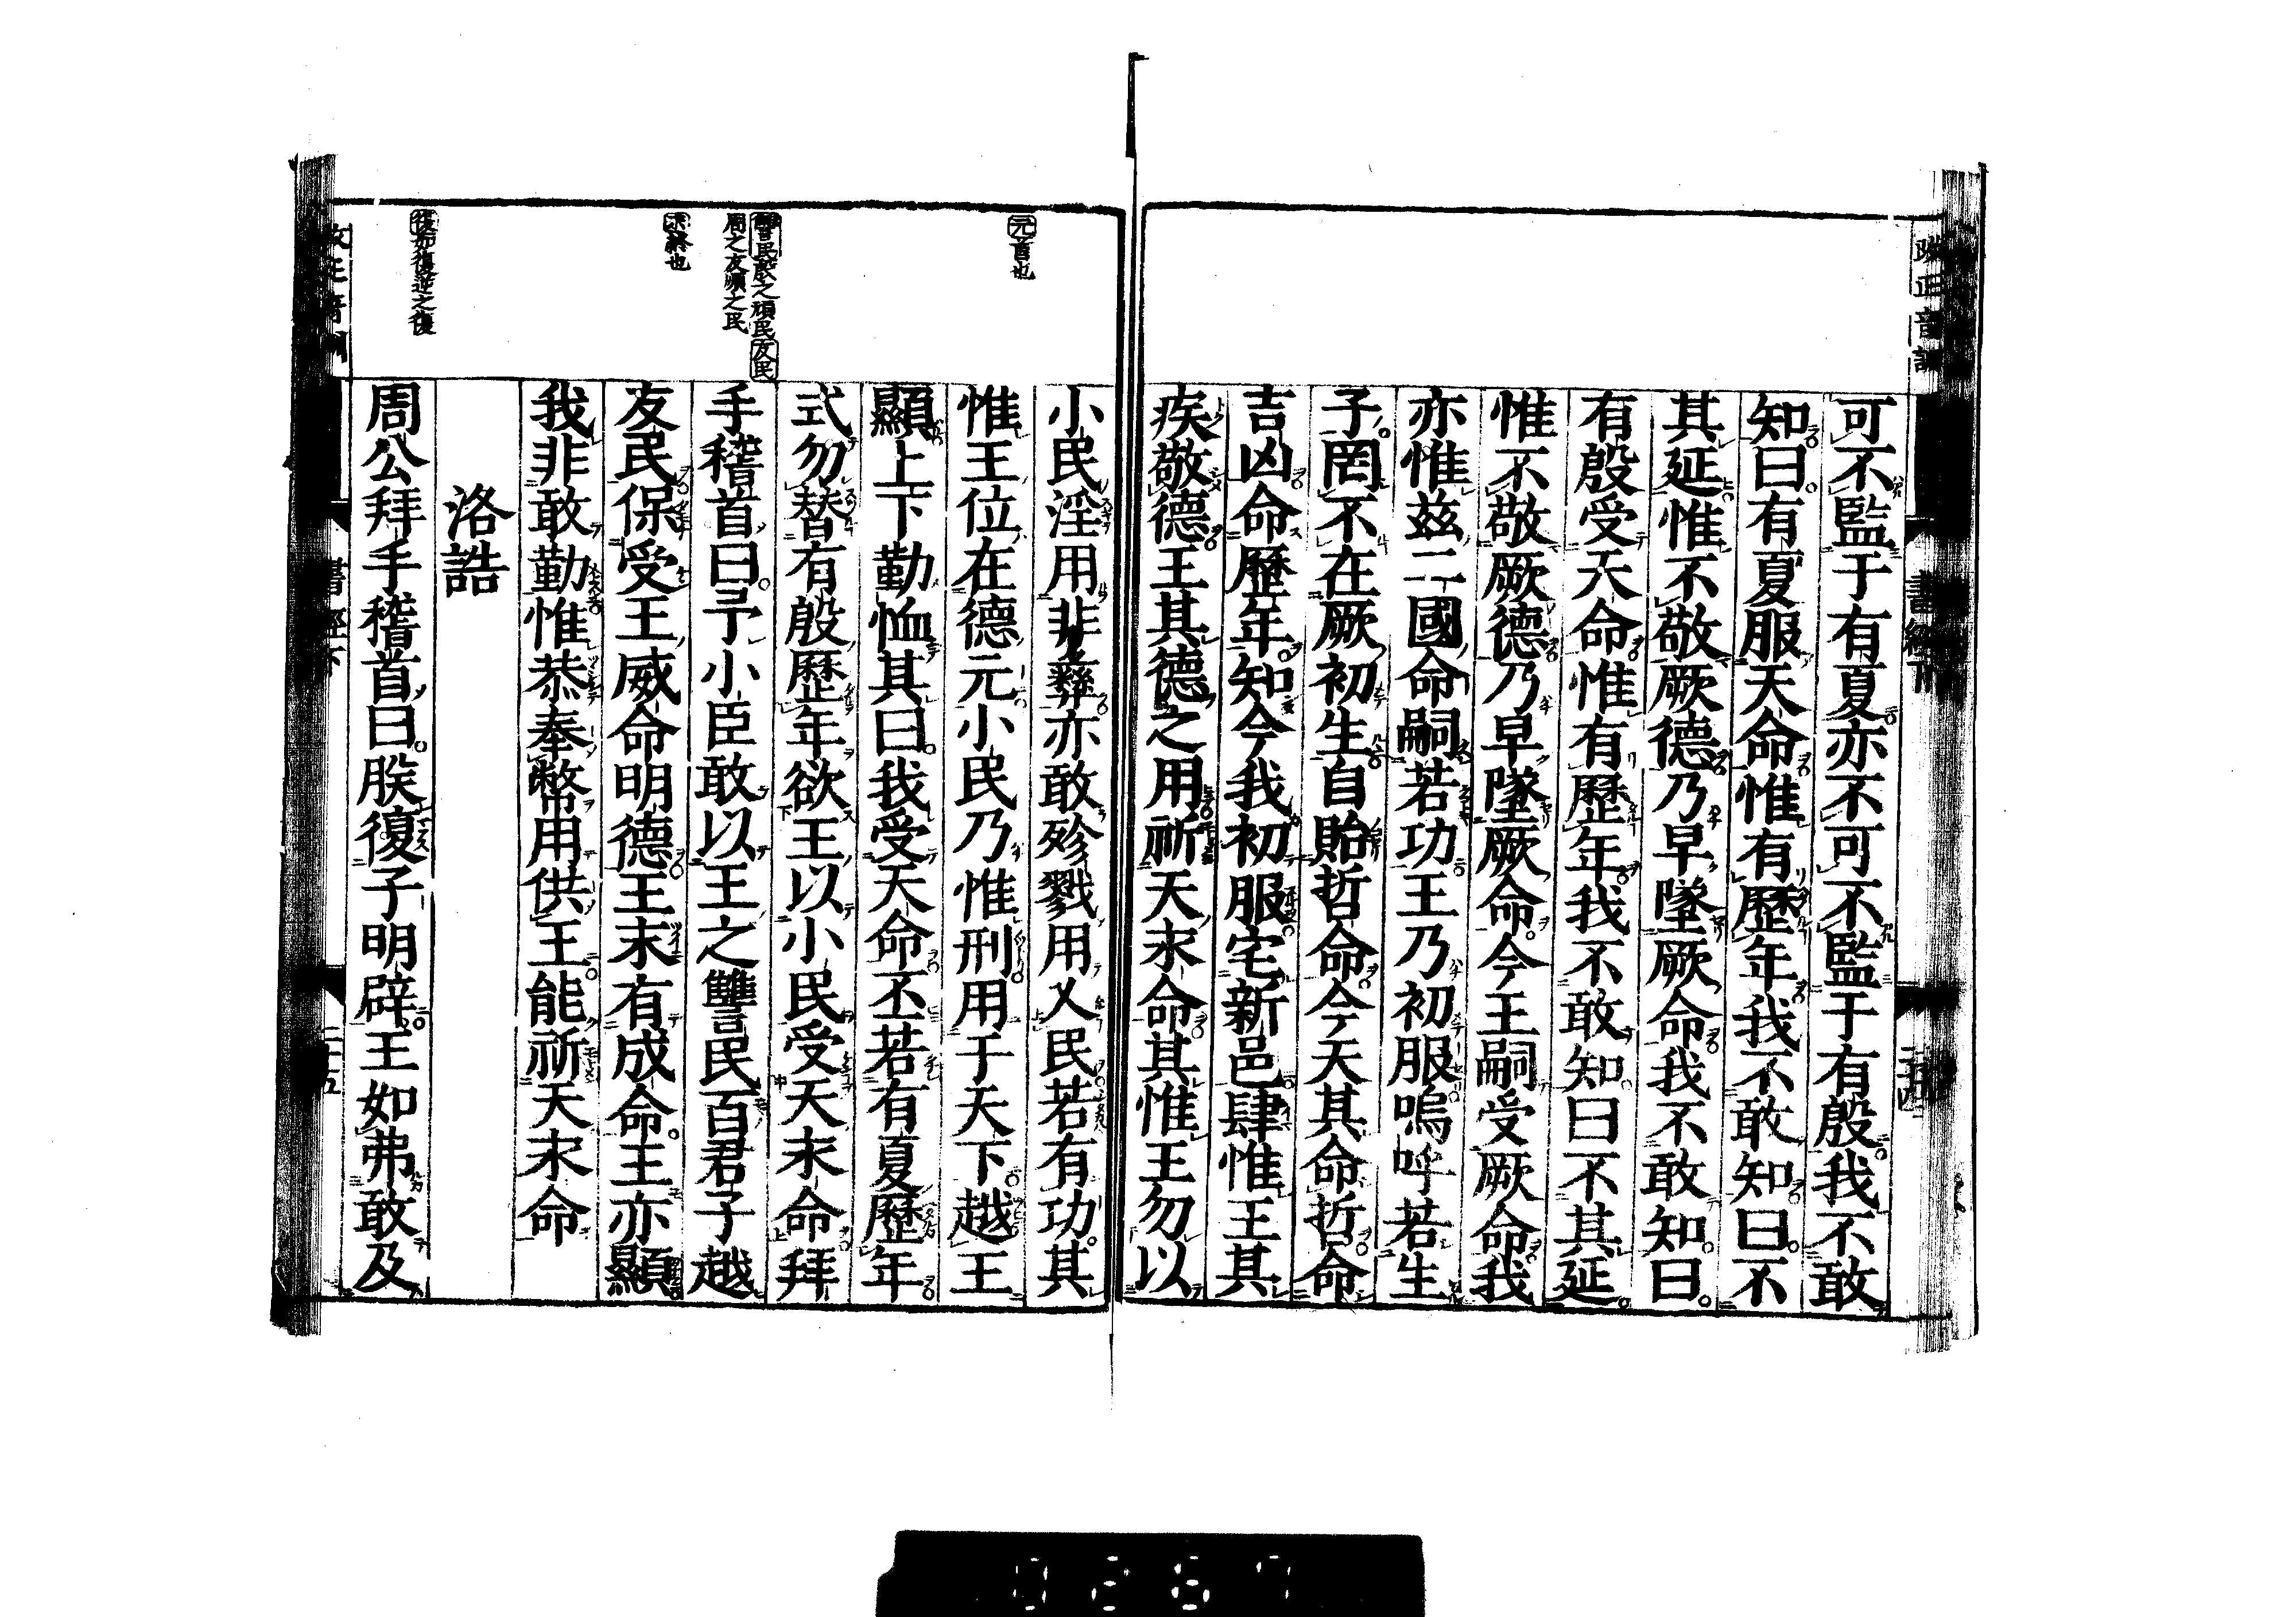 可不監于有夏亦不可不監于有殷我不敢
知曰有夏服天命惟有歷年我不敢知曰不
其延惟不敬厥德乃早墜厥命我不敢知曰
有殷受天命惟有歷年我不敢知曰不其延
惟不敬厥德乃早墜厥命今王嗣受厥命我
亦惟茲二國命嗣若功王乃初服嗚呼若生
子罔不在厥初生自貽哲命今天其命哲命
吉凶命歷年知今我初服宅新邑肆惟王其
疾敬德王其德之用祈天永命其惟王勿以
元首也
讐民殷之頑民友民
周之友順之民
末終也
復如復逆之復
小民淫用非彝亦敢殄戮用乂民若有功其
惟王位在德元小民乃惟刑用于天下越王
顯上下勤恤其曰我受天命丕若有夏歷年
式勿替有殷歷年欲王以小民受天永命拜
手稽首曰予小臣敢以王之讐民百君子越
友民保受王威命明德王末有成命王亦顯
我非敢勤惟恭奉幣用供王能祈天永命
洛誥
周公拜手稽首曰朕復子明辟王如弗敢及
書經下
二十五